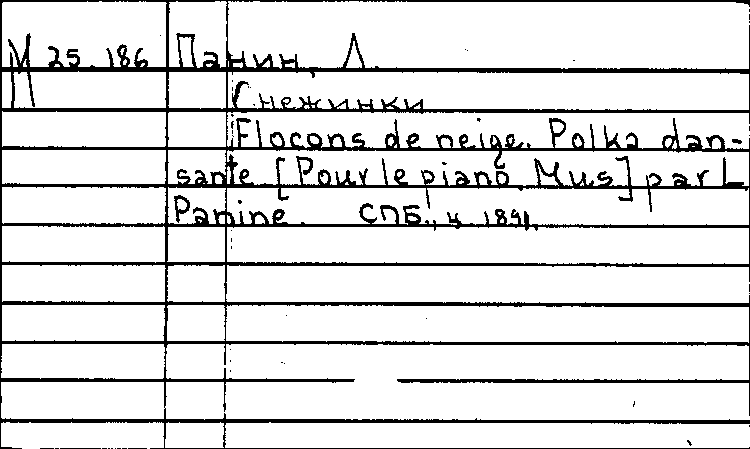 М 25.186 Панин, Л.
Снежинки
Flocons de neige. Polka dan-
sante [Pour le piano. Mus] par L
Panine. СПБ., ц. 1891.